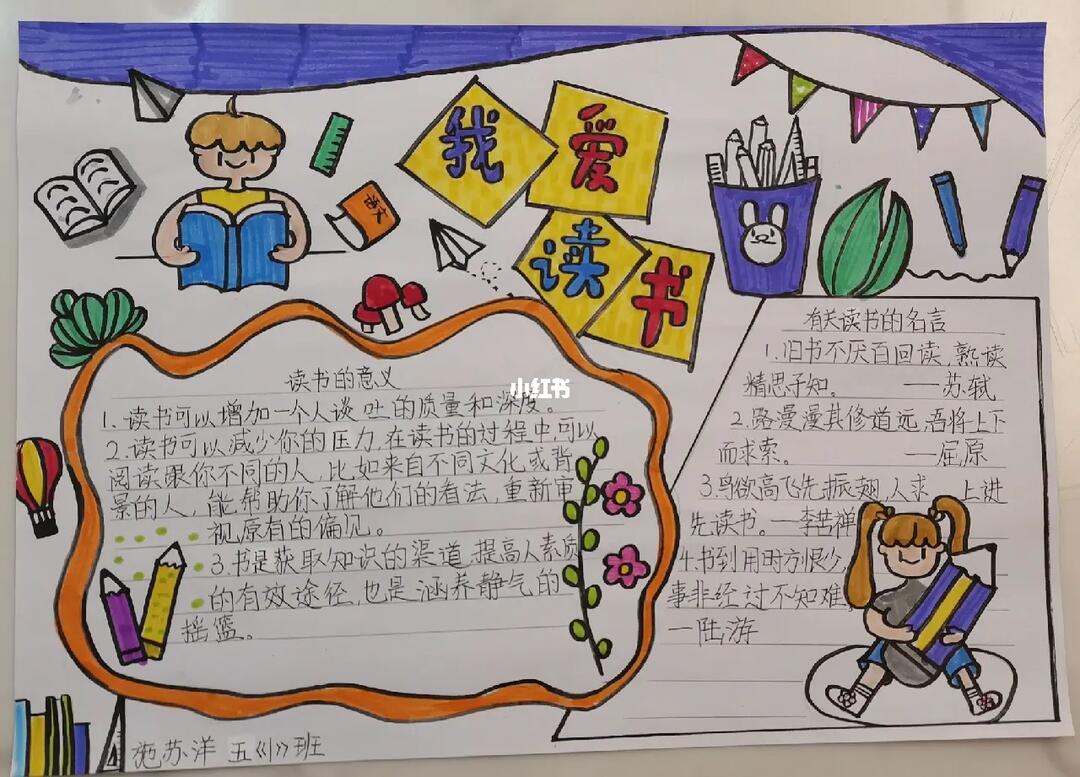 我爱读书
语文
小红书
读书的意义
1.读书可以增加一个人谈吐的质量和深度。
2.读书可以减少你的压力,在读书的过程中,可以
阅读跟你不同的人,比如来自不同文化或背
景的人,能帮助你了解他们的看法,重新审
视原有的偏见。
3.书是获取知识的渠道,提高人素质
的有效途径,也是涵养静气的
摇篮。
有关读书的名言
1.旧书不厌百回读,熟读
精思子知。 —苏轼
2.路漫漫其修道远,吾将上下
而求索。 —屈原
3.鸟欲高飞先振翅,人求 上进
先读书。—李苦禅
4.书到用时方恨少,
事非经过不知难,
—陆游
施苏洋 五《1》班